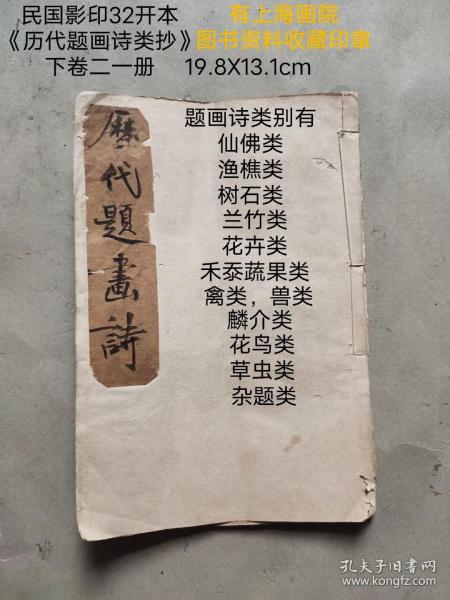 民国影印32开本
有上海画院
《历代题画诗类抄》图书资料收藏印章
下卷二一册 19.8X13.1cm
歷代題畫詩
题画诗类别有
仙佛类
渔樵类
树石类
兰竹类
花卉类
禾泰蔬果类
禽类，兽类
麟介类
花鸟类
草虫类
杂题类
孔夫子旧书网
www.kongfz.com